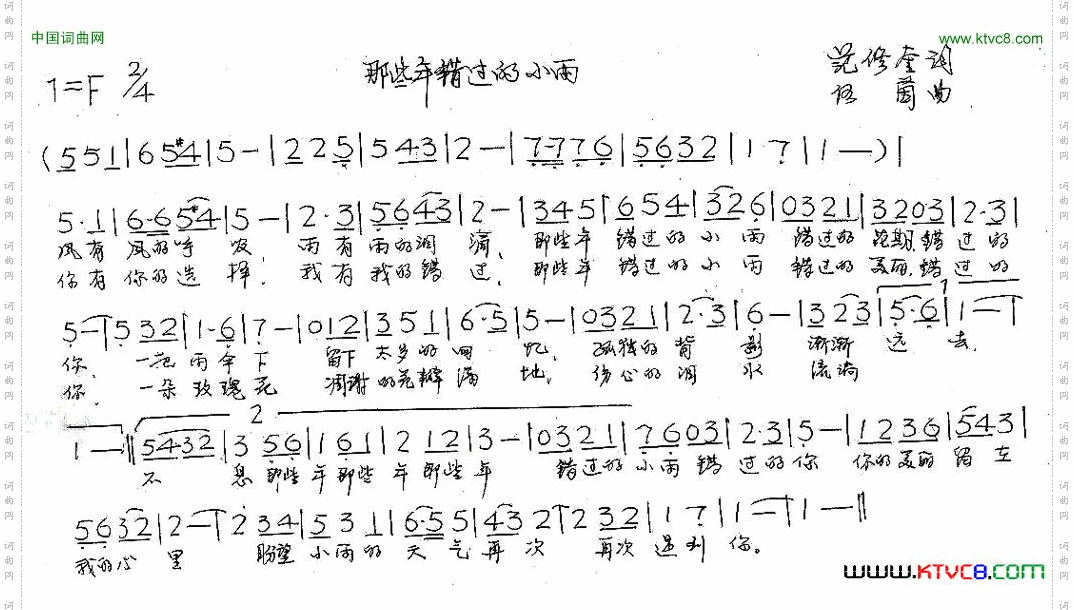 中国词曲网
www.ktvc8.com
那些年错过的小雨
范修奎词
珞菌曲
1=F 2/4
(551|65#4|5—|225|543|2—|7·776|5632|17|1—)|
5·1|6·65#4|5—|2·3|5643|2—|345|654|326|0321|3203|2·3|
风有 风的呼吸, 雨有雨的 滴, 那些年 错过的小雨 错过的花期,错过的
你有 你的选择, 我有我的错过, 那些年 错过的小雨 错过的美丽,错过的
1
5—|532|1·6|7—|012|351|6·5|5—|0321|2·3|6—|323|5·6|1—|
你, 一把雨伞下 留下太多的回忆, 孤独的背影 渐渐远去,
你, 一朵玫瑰花 凋谢的花瓣满地, 伤心的泪水 流淌
2
1—‖5432|356|161|212|3—|0321|7603|2·3|5—|1236|543|
不息 那些年那些年那些年 错过的小雨错过的你 你的美丽留在
5632|2—|234|531|6·55|432|232|17|1—|1—‖
我的心里 盼望小雨的天气再次 再次遇到你。
WWW.KTVC8.COM
词曲网